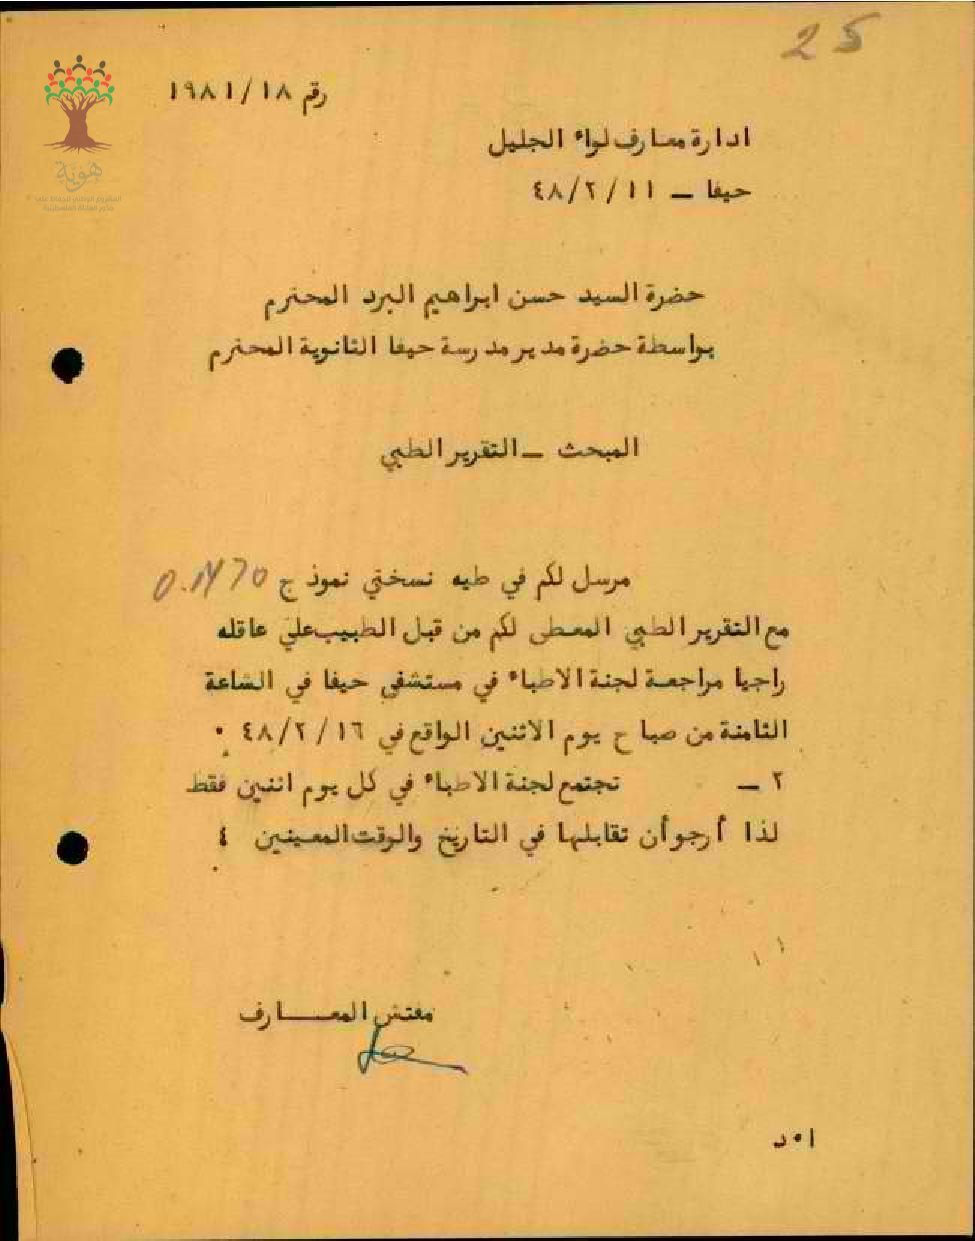 25
رقم ١٨/١٩٨١
هوية
ادارة معارف لواء الجليل
حيفا – ٤٨/٢/١١
حضرة السيد حسن ابراهيم البرد المحترم
بواسطة حضرة مدير مدرسة حيفا الثانوية المحترم
المبحث – التقرير الطبي
مرسل لكم في طيه نسختي نموذج
مع التقرير الطبي المعطى لكم من قبل الطبيب علي عاقله
راجيا مراجعة لجنة الاطباء في مستشفى حيفا في الشاعة
الثامنة من صباح يوم الاثنين الواقع في ٤٨/٢/١٦ .
٢ – تجتمع لجنة الاطباء في كل يوم اثنين فقط
لذا أرجو أن تقابلها في التاريخ والوقت المعينين ٤
مفتش المعـــارف
ا٠د